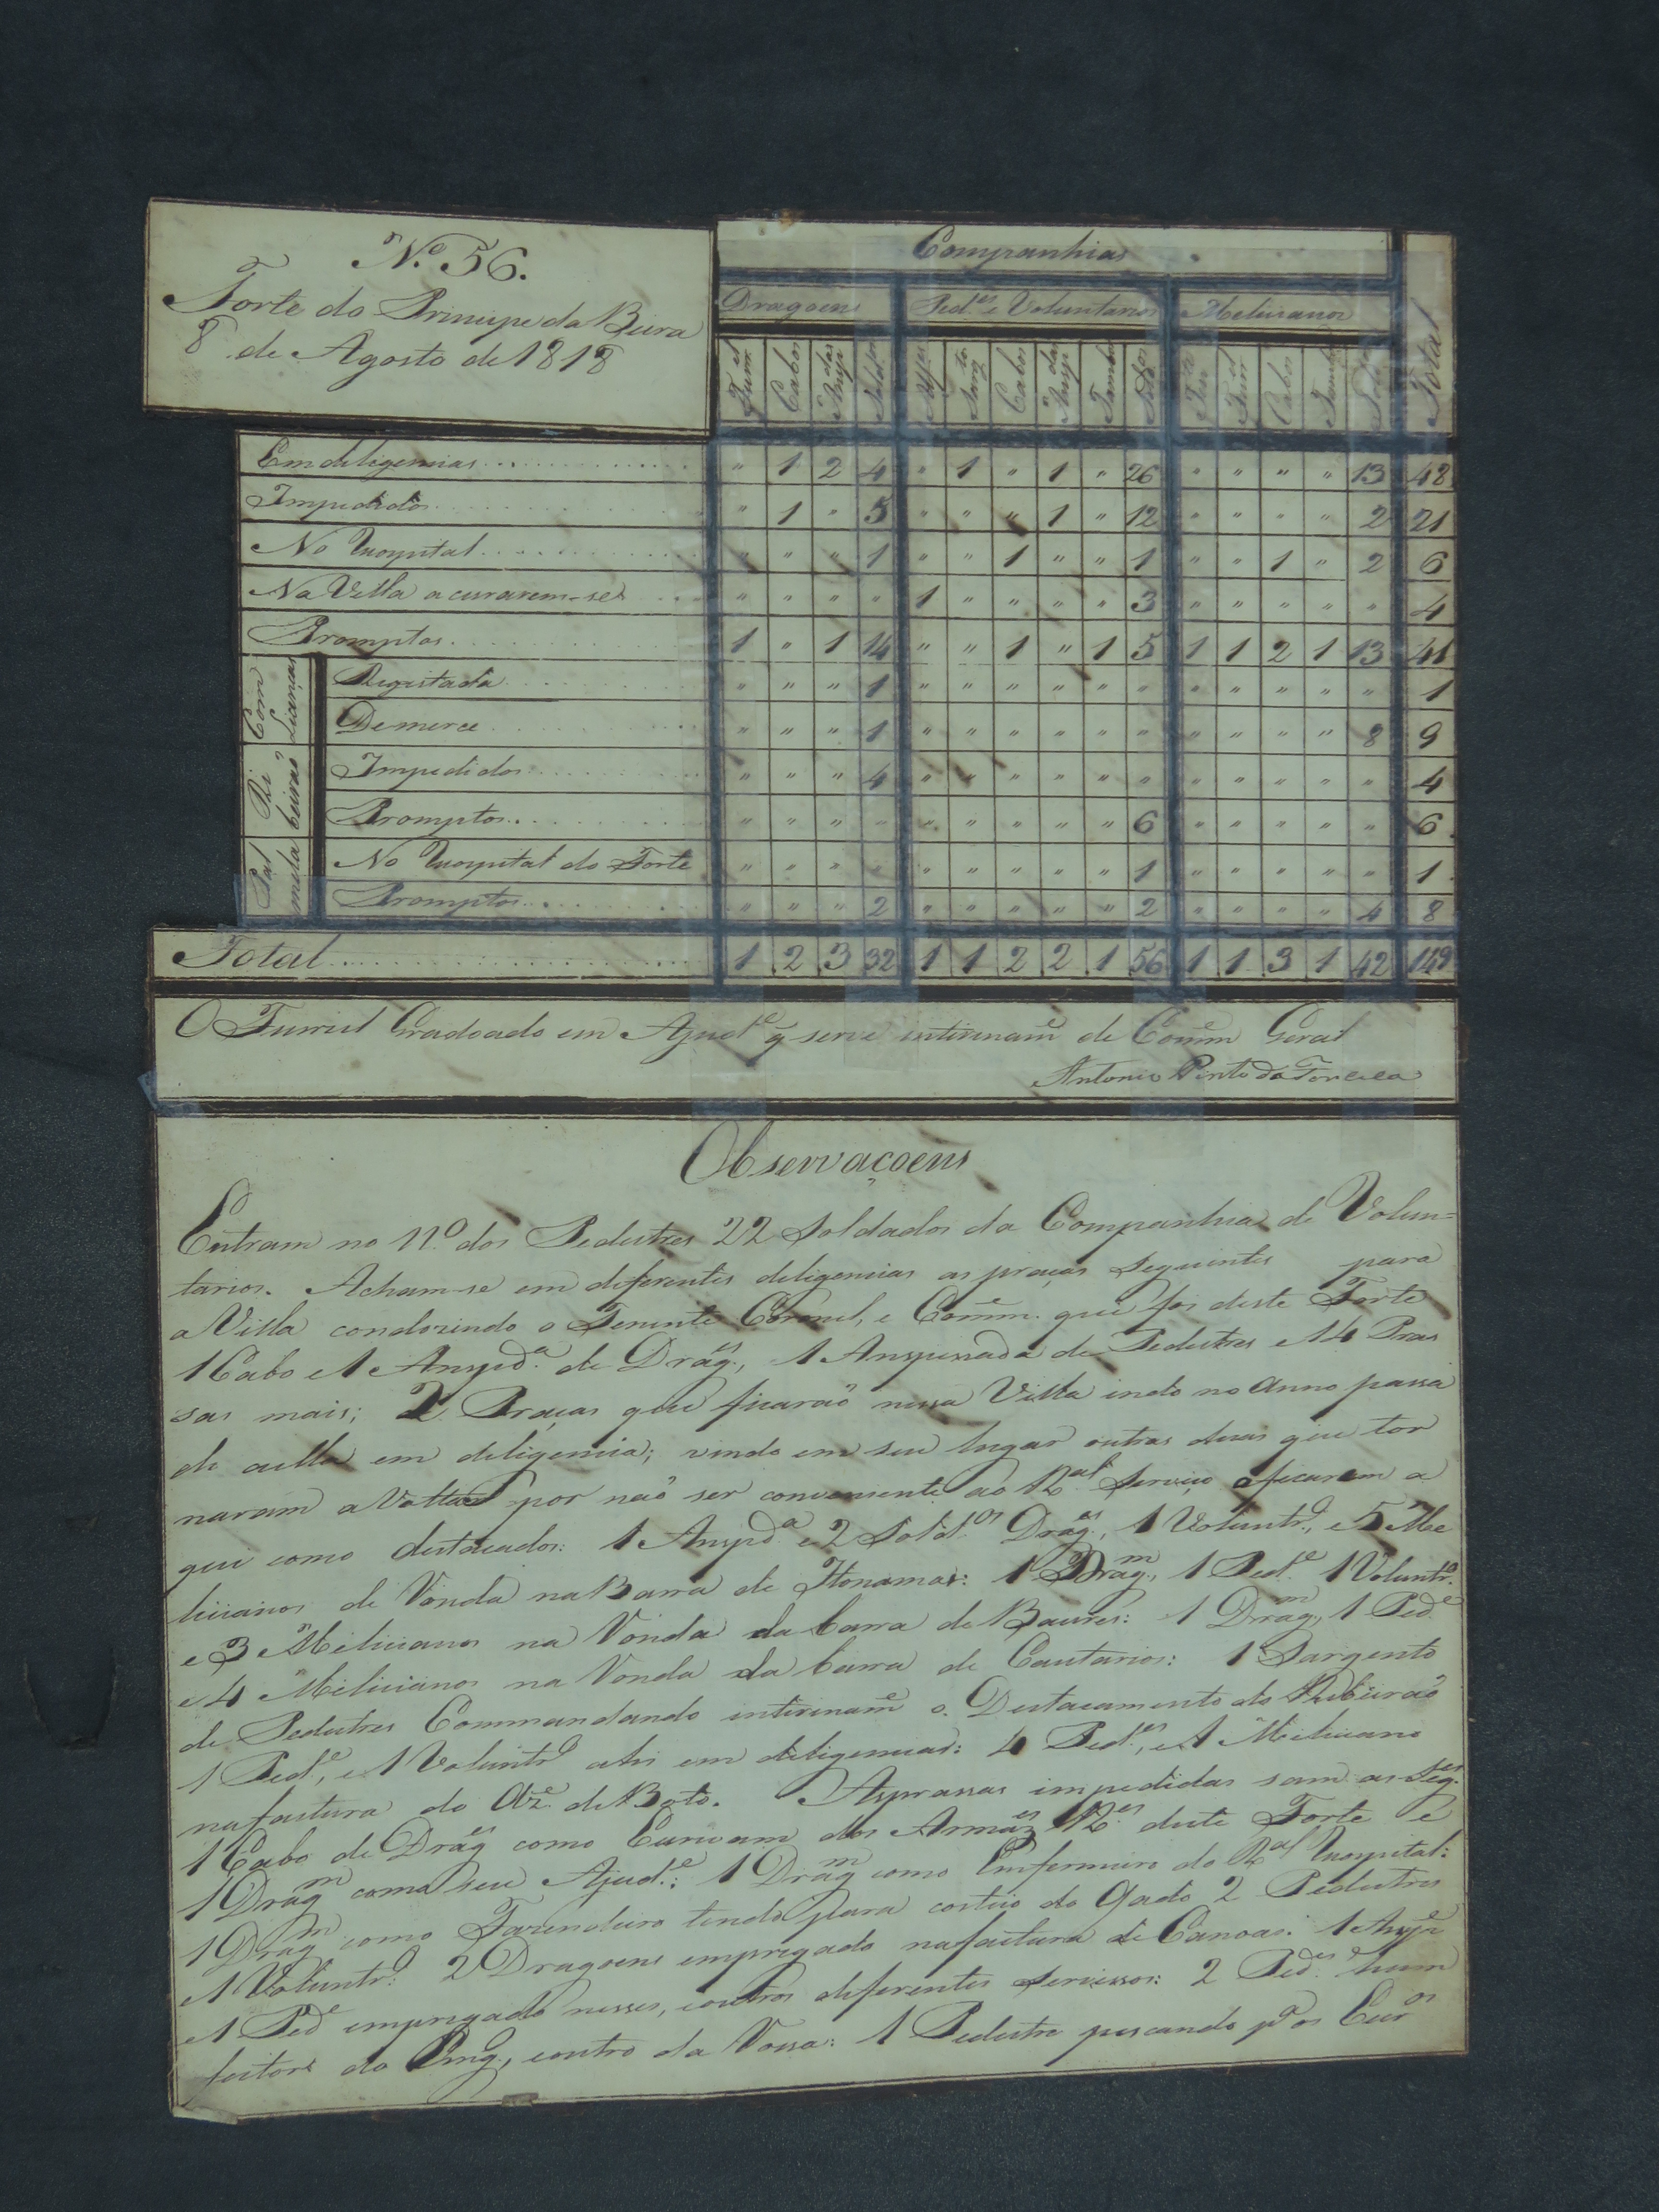 N.º 56.
Forte do Principe da Beira
8 de Agosto de 1818
Companhias
Dragoens Ped.es e Voluntarios Melicianos Total
Furr.el Cabos Ansp.das Sold.os Alferes Sarg.to Cabos Ansp.das Tambor Sold.os Furr.el Cabos Tambor Sold.os
Em deligencias " 1 2 4 " 1 " 1 " 26 " " " " 13 48
Impedidos " 1 " 5 " " " 1 " 12 " " " " 2 21
No Hospital " " " 1 " " 1 " " 1 " " 1 " 2 6
Na Villa a curarem-se " " " " 1 " " " " 3 " " " " " 4
Promptos 1 " 1 14 " " 1 " 1 5 1 1 2 1 13 41
Com Licenças
Registada " " " 1 " " " " " " " " " " " 1
De merce " " " 1 " " " " " " " " " " 8 9
Ribeirão
Impedidos " " " 4 " " " " " " " " " " " 4
Promptos " " " " " " " " " 6 " " " " " 6
Palmela
No Hospital do Forte " " " " " " " " " 1 " " " " " 1
Promptos " " " 2 " " " " " 2 " " " " 4 8
Total 1 2 3 32 1 1 2 2 1 56 1 1 3 1 42 149
O Furriel Gradoado em Ajud.e q̃ serve intirinam.e de Comm.e Geral
Antonio Pinto da Fonceca
Observaçoens
Entram no N.º dos Pedestres 22 Soldados da Companhia de Volun=
tarios. Acham-se em diferentes deligencias as praças Seguintes para
a Villa condozindo o Tenente Coronel, e Comm.e que foi deste Forte
1 Cabo e 1 Anspd.a de Drag.es, 1 Anspessada de Pedestres e 14 Pras
sas mais; 2 Praças que ficarão nessa Villa indo no Anno passa
do aella em deligencia; vindo em seu lugar outras duas que tor
naram a Voltar por não ser conveniente ao R.al Serviço aficarem a
qui como destacados: 1 Anspd.a e 2 Sold.os Drag.es, 1 Voluntr.o, e 5 Me
licianos de Ronda na Barra de Itonamas: 1 Drag.m, 1 Ped.e 1 Voluntr.o
e 3 Melicianos na Ronda da barra de Baures: 1 Drag.m, 1 Ped.e
e 4 Melicianos na Ronda da barra de Cautarios: 1 Sargento
de Pedestres Commandando intirinam.e o Destacamento do Ribeirão
1 Ped.e, e 1 Voluntr.o ahi em deligencias: 4 Ped.es, e 1 Meliciano
na fastura do Az.e de Boto. As prassas impedidas sam as Seg.es
1 Cabo de Drag.es como Escrivam dos Armaz.es R.es deste Forte e
1 Drag.m como seu Ajud.e: 1 Drag.m como Enfermeiro do R.al Hospital:
1 Drag.m como Fazendeiro tendo para costeio do Gado 2 Pedestres
e 1 Voluntr.o: 2 Dragoens empregado na factura de Canoas: 1 Ansp.e
e 1 Ped.e empregado nesses, e outros diferentes servissos: 2 Ped.es hum
feitor do Eng.o, e outro da Rossa: 1 Pedestre pescando p.a os